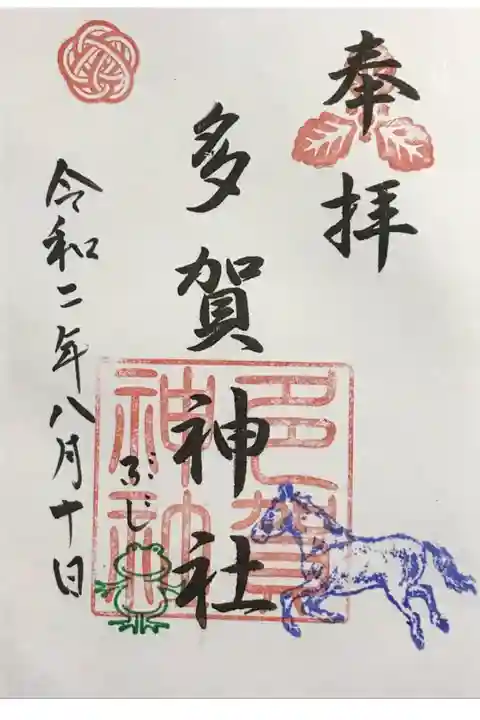 奉拝
多賀神社
多賀神社
ぶじ
令和二年八月十日